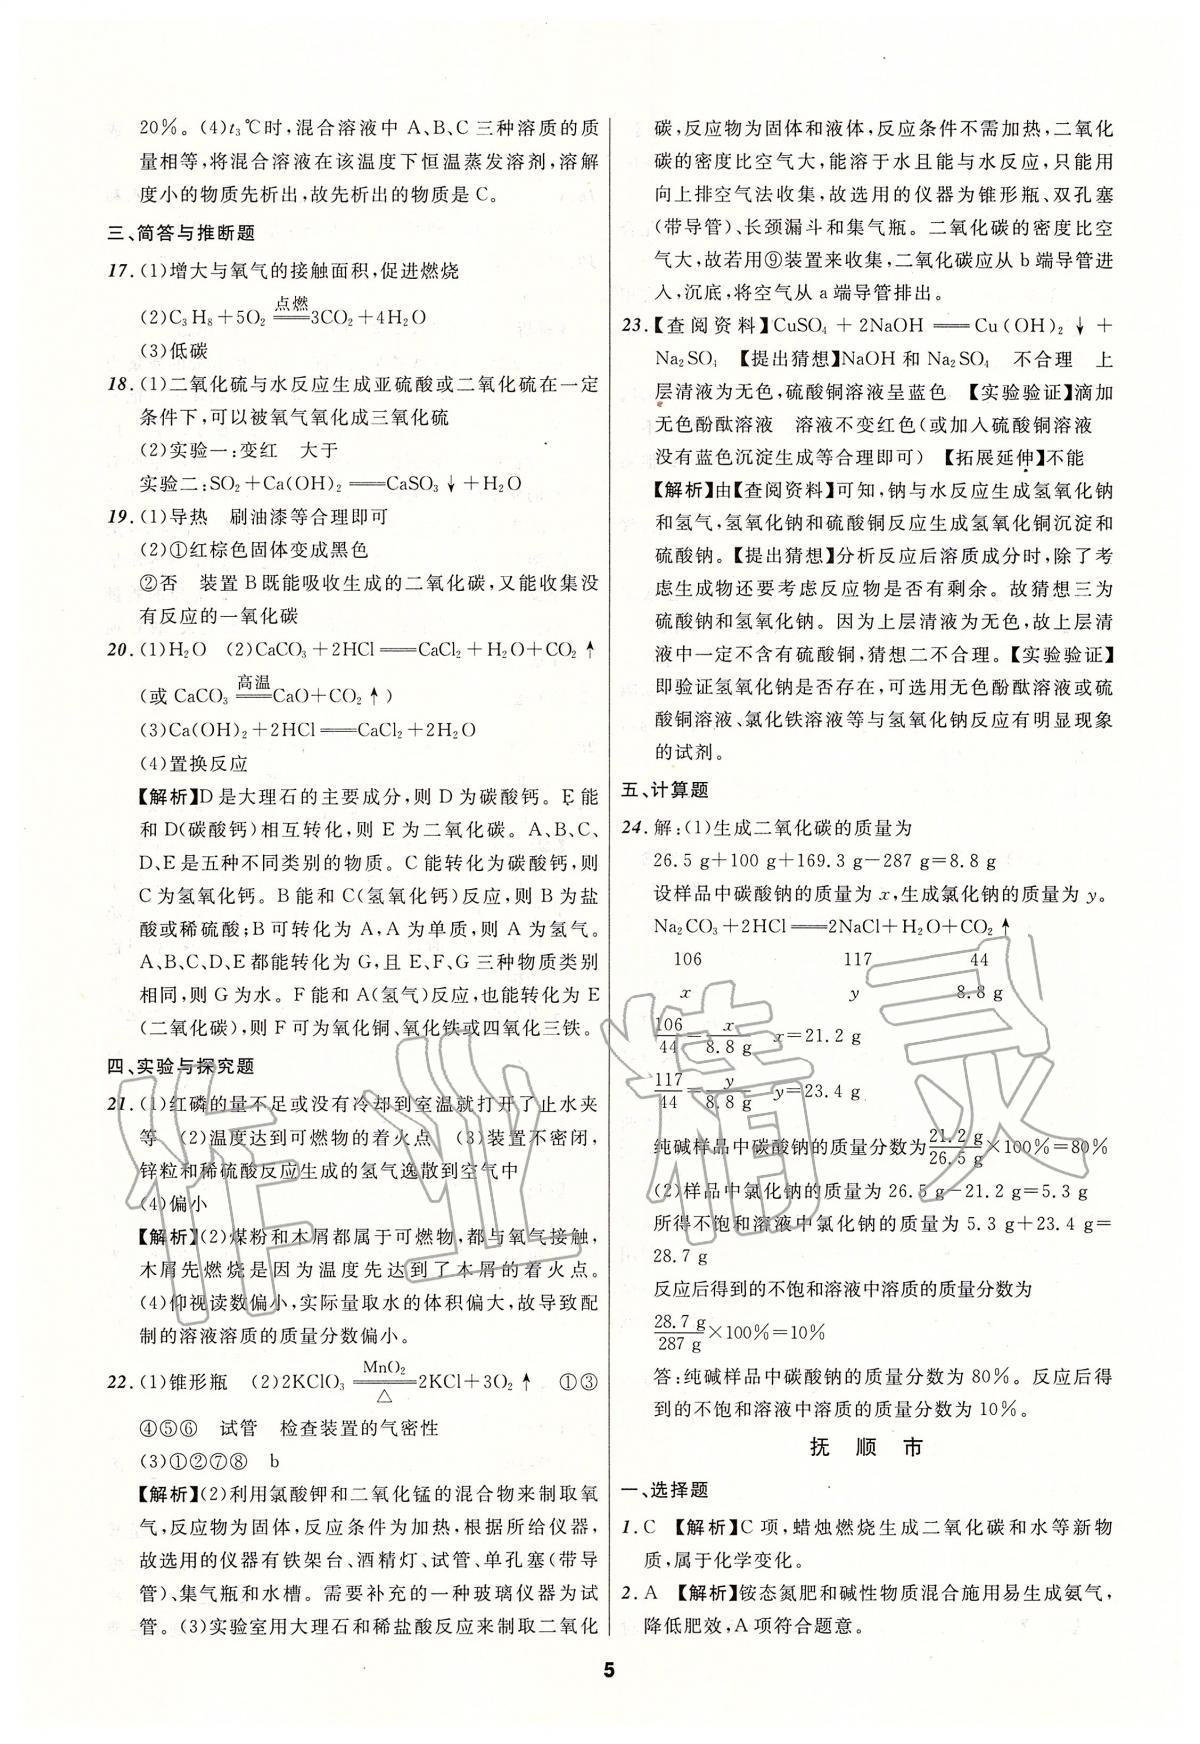 20%。(4)t₃℃时,混合溶液中 A、B、C 三种溶质的质
量相等,将混合溶液在该温度下恒温蒸发溶剂,溶解
度小的物质先析出,故先析出的物质是 C。
三、简答与推断题
17.(1)增大与氧气的接触面积,促进燃烧
(2)C₃H₈+5O₂ 点燃══ 3CO₂+4H₂O
(3)低碳
18.(1)二氧化硫与水反应生成亚硫酸或二氧化硫在一定
条件下,可以被氧气氧化成三氧化硫
(2)实验一:变红 大于
实验二:SO₂+Ca(OH)₂══CaSO₃↓+H₂O
19.(1)导热 刷油漆等合理即可
(2)①红棕色固体变成黑色
②否 装置 B 既能吸收生成的二氧化碳,又能收集没
有反应的一氧化碳
20.(1)H₂O (2)CaCO₃+2HCl══CaCl₂+H₂O+CO₂↑
(或 CaCO₃ 高温══ CaO+CO₂↑)
(3)Ca(OH)₂+2HCl══CaCl₂+2H₂O
(4)置换反应
【解析】D 是大理石的主要成分,则 D 为碳酸钙。E 能
和 D(碳酸钙)相互转化,则 E 为二氧化碳。A、B、C、
D、E 是五种不同类别的物质。C 能转化为碳酸钙,则
C 为氢氧化钙。B 能和 C(氢氧化钙)反应,B 为盐
酸或稀硫酸;B 可转化为 A,A 为单质,则 A 为氢气。
A、B、C、D、E 都能转化为 G,且 E、F、G 三种物质类别
相同,则 G 为水。F 能和 A(氢气)反应,也能转化为 E
(二氧化碳),则 F 可为氧化铜、氧化铁或四氧化三铁。
四、实验与探究题
21.(1)红磷的量不足或没有冷却到室温就打开了止水夹
等 (2)温度达到可燃物的着火点 (3)装置不密闭,
锌粒和稀硫酸反应生成的氢气逸散到空气中
(4)偏小
【解析】(2)煤粉和木屑都属于可燃物,都与氧气接触,
木屑先燃烧是因为温度先达到了木屑的着火点。
(4)仰视读数偏小,实际量取水的体积偏大,故导致配
制的溶液溶质的质量分数偏小。
22.(1)锥形瓶 (2)2KClO₃ MnO₂══△ 2KCl+3O₂↑ ①③
④⑤⑥ 试管 检查装置的气密性
(3)①②⑦⑧ b
【解析】(2)利用氯酸钾和二氧化锰的混合物来制取氧
气,反应物为固体,反应条件为加热,根据所给仪器,
故选用的仪器有铁架台、酒精灯、试管、单孔塞(带导
管)、集气瓶和水槽。需要补充的一种玻璃仪器为试
管。(3)实验室用大理石和稀盐酸反应来制取二氧化
碳,反应物为固体和液体,反应条件不需加热,二氧化
碳的密度比空气大,能溶于水且能与水反应,只能用
向上排空气法收集,故选用的仪器为锥形瓶、双孔塞
(带导管)、长颈漏斗和集气瓶。二氧化碳的密度比空
气大,故若用⑨装置来收集,二氧化碳应从 b 端导管进
入,沉底,将空气从 a 端导管排出。
23.【查阅资料】CuSO₄+2NaOH══Cu(OH)₂↓+
Na₂SO₄ 【提出猜想】NaOH 和 Na₂SO₄ 不合理 上
层清液为无色,硫酸铜溶液呈蓝色 【实验验证】滴加
无色酚酞溶液 溶液不变红色(或加入硫酸铜溶液
没有蓝色沉淀生成等合理即可) 【拓展延伸】不能
【解析】由【查阅资料】可知,钠与水反应生成氢氧化钠
和氢气,氢氧化钠和硫酸铜反应生成氢氧化铜沉淀和
硫酸钠。【提出猜想】分析反应后溶质成分时,除了考
虑生成物还要考虑反应物是否有剩余。故猜想三为
硫酸钠和氢氧化钠。因为上层清液为无色,故上层清
液中一定不含有硫酸铜,猜想二不合理。【实验验证】
即验证氢氧化钠是否存在,可选用无色酚酞溶液或硫
酸铜溶液、氯化铁溶液等与氢氧化钠反应有明显现象
的试剂。
五、计算题
24.解:(1)生成二氧化碳的质量为
26.5 g+100 g+169.3 g-287 g=8.8 g
设样品中碳酸钠的质量为 x,生成氯化钠的质量为 y。
Na₂CO₃+2HCl══2NaCl+H₂O+CO₂↑
106 117 44
x y 8.8 g
106/44=x/8.8 g x=21.2 g
117/44=y/8.8 g y=23.4 g
纯碱样品中碳酸钠的质量分数为21.2 g/26.5 g×100%=80%
(2)样品中氯化钠的质量为 26.5 g-21.2 g=5.3 g
所得不饱和溶液中氯化钠的质量为 5.3 g+23.4 g=
28.7 g
反应后得到的不饱和溶液中溶质的质量分数为
28.7 g/287 g×100%=10%
答:纯碱样品中碳酸钠的质量分数为 80%。反应后得
到的不饱和溶液中溶质的质量分数为 10%。
抚 顺 市
一、选择题
1.C 【解析】C 项,蜡烛燃烧生成二氧化碳和水等新物
质,属于化学变化。
2.A 【解析】铵态氮肥和碱性物质混合施用易生成氨气,
降低肥效,A 项符合题意。
5
作业精灵